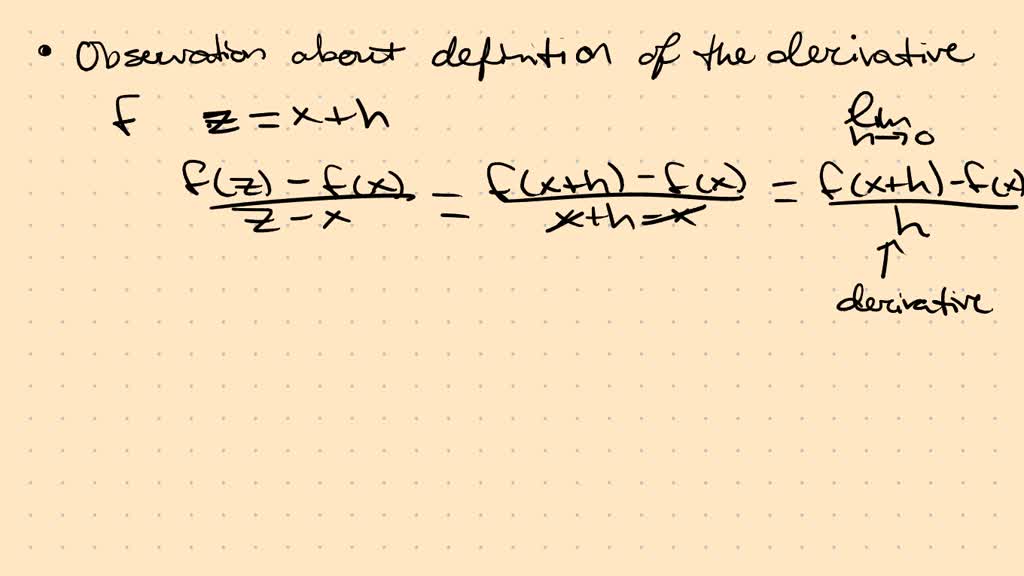 • Observation about definition of the derivative
f z = x+h lim h→0
f(z) - f(x) / z - x = f(x+h) - f(x) / x+h-x = f(x+h) - f(x) / h
↑
derivative